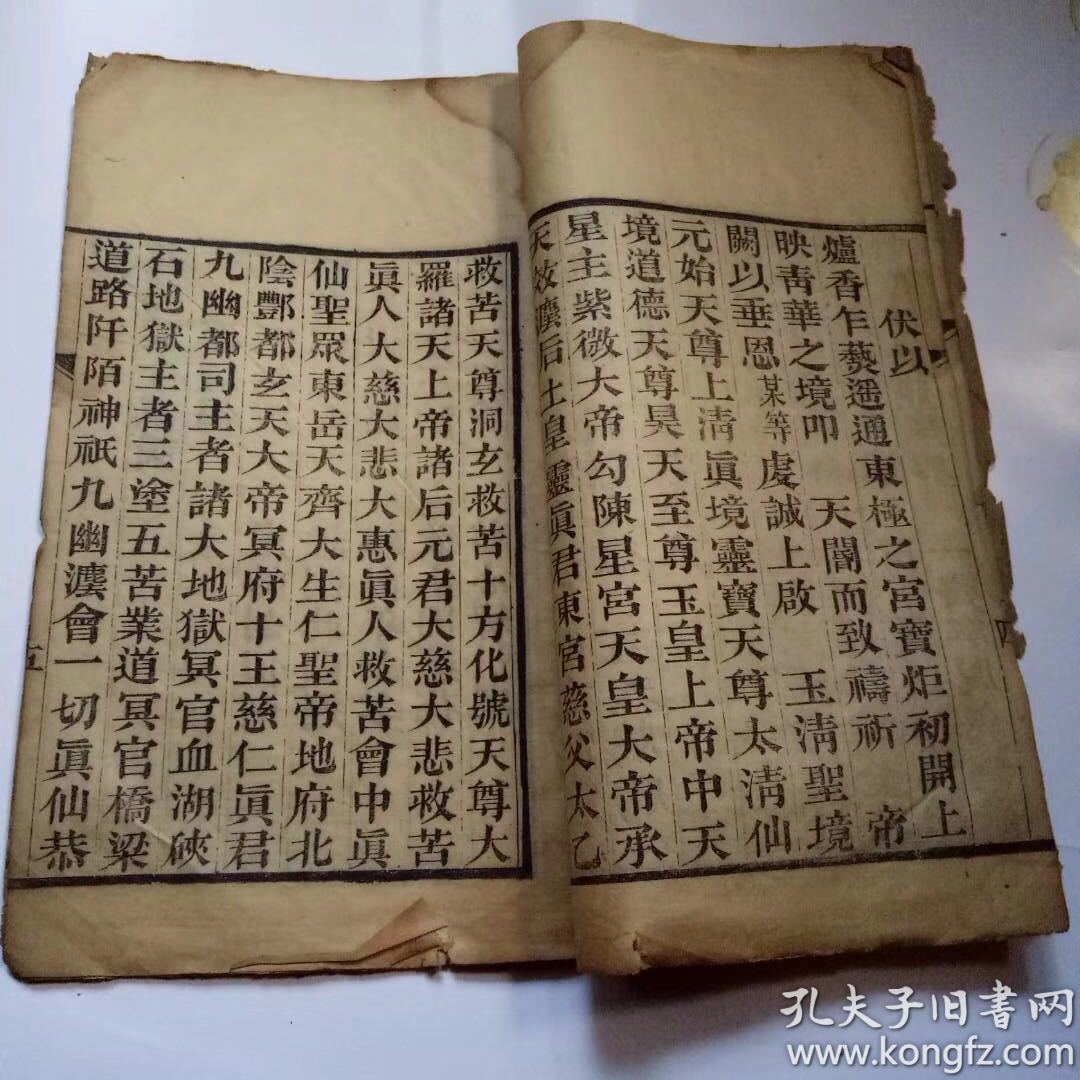 伏以
爐香乍爇遥通東極之宮寶炬初開上
映靑華之境叩　天閽而致禱祈　帝
闕以垂恩某等虔誠上啟　玉淸聖境
元始天尊上淸眞境靈寶天尊太淸仙
境道德天尊昊天至尊玉皇上帝中天
星主紫微大帝勾陳星宮天皇大帝承
天效灋后土皇靈眞君東宮慈父太乙
救苦天尊洞玄救苦十方化號天尊大
羅諸天上帝諸后元君大慈大悲救苦
眞人大慈大悲大惠眞人救苦會中眞
仙聖眾東岳天齊大生仁聖帝地府北
陰酆都玄天大帝冥府十王慈仁眞君
九幽都司主者諸大地獄冥官血湖硤
石地獄主者三塗五苦業道冥官橋梁
道路阡陌神祇九幽灋會一切眞仙恭
四
五
孔夫子旧书网
www.kongfz.com